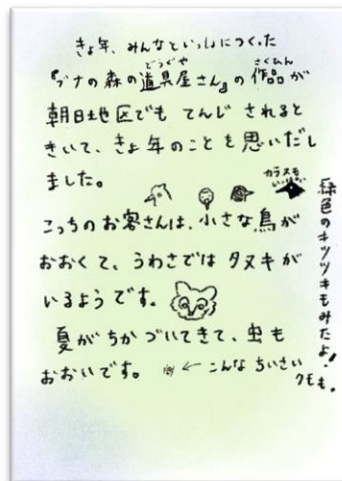 きょ年、みんなといっしょにつくった
『ブナの森の道具屋さん』の作品が
どうぐや
さくひん
朝日地区でも てんじ されると
きいて、きょ年のことを思いだし
ました。
カラスも
いっぱい
こっちのお客さんは、小さな鳥が
おおくて、うわさでは タヌキが
いるようです。
夏が ちかづいてきて、虫も
おおいです。 ← こんな ちいさい
クモも。
緑色のキツツキもみたよ!